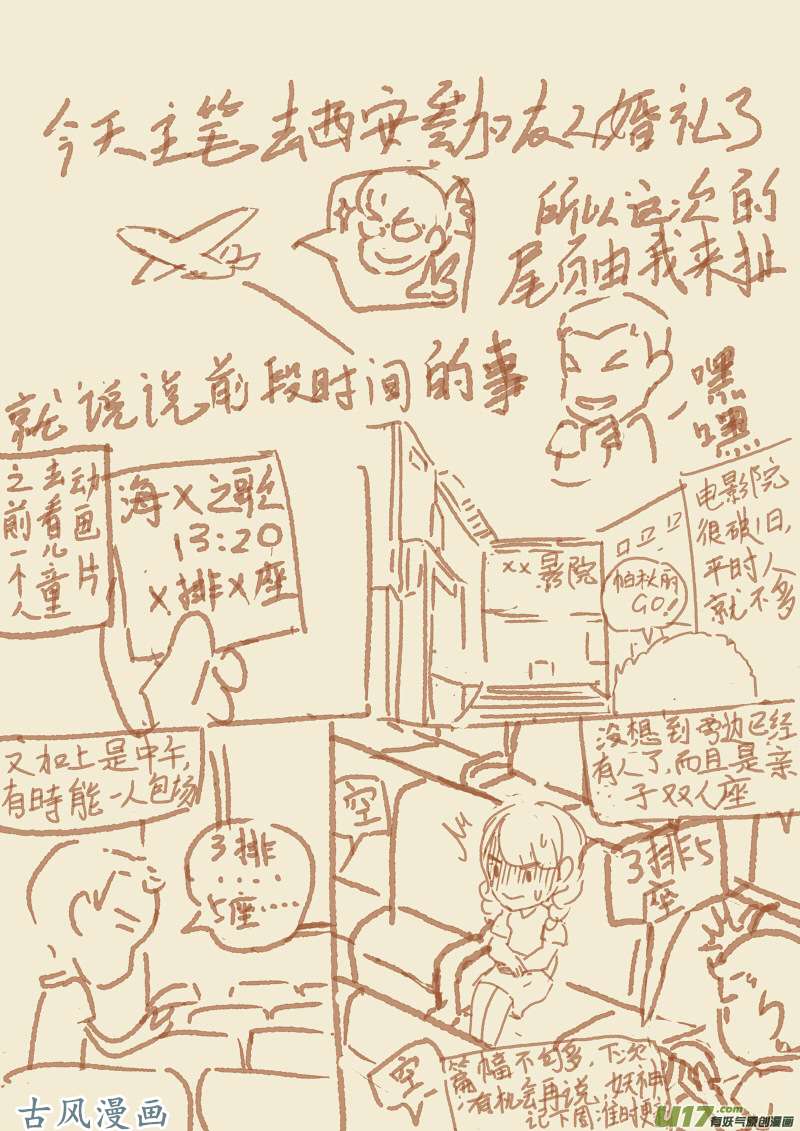 今天主笔去西安参加友人婚礼了
所以这次的
尾页由我来扯
就说说前段时间的事
嘿
嘿
之前一个人
去看儿童
动画片
海X之歌
13:20
X排X座
XX影院
帕秋丽
GO!
电影院
很破旧,
平时人
就不多
又加上是中午,
有時能一人包场
3排
....
5座......
空
没想到旁边已经
有人了,而且是亲
子双人座
3排5
座
空
篇幅不句多,下次
有机会再说,妖神
记下周准时更
古风漫画
U17.com
有妖气原创漫画